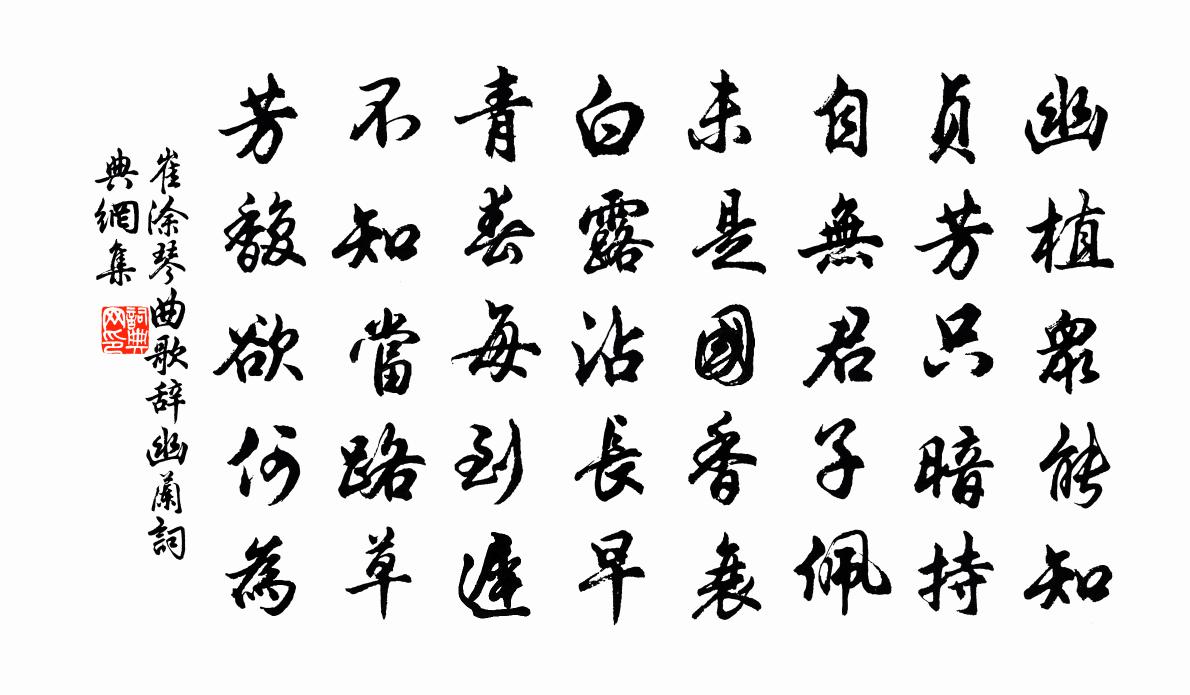 幽植眾能知
貞芳只暗持
自無君子佩
未是國香衰
白露沾長早
青春每到遲
不知當路草
芳馥欲何為
崔涂琴曲歌辞幽蘭詞
典網集
詞典
网印